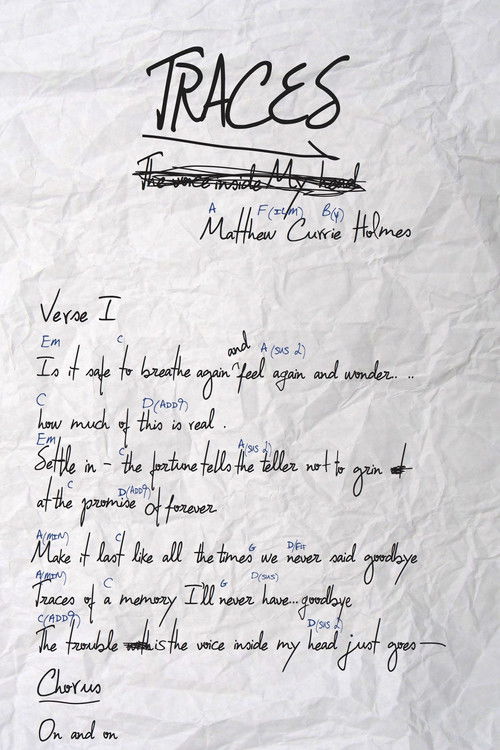 TRACES
The voice inside My head
A F(ILM) B(Y)
Matthew Currie Holmes
Verse I
Em C and A(sus 2)
Is it safe to breathe again ^ feel again and wonder.. ..
C D(ADD9)
how much of this is real .
Em A(sus 2)
Settle in - the fortune tells the teller not to grin
C D(ADD9)
at the promise of forever
A(MIN) C G D/F#
Make it last like all the times we never said goodbye
A(MIN) C G D(sus)
Traces of a memory I'll never have... goodbye
C(ADD9) D(sus 2)
The trouble is the voice inside my head just goes —
Chorus
On and on